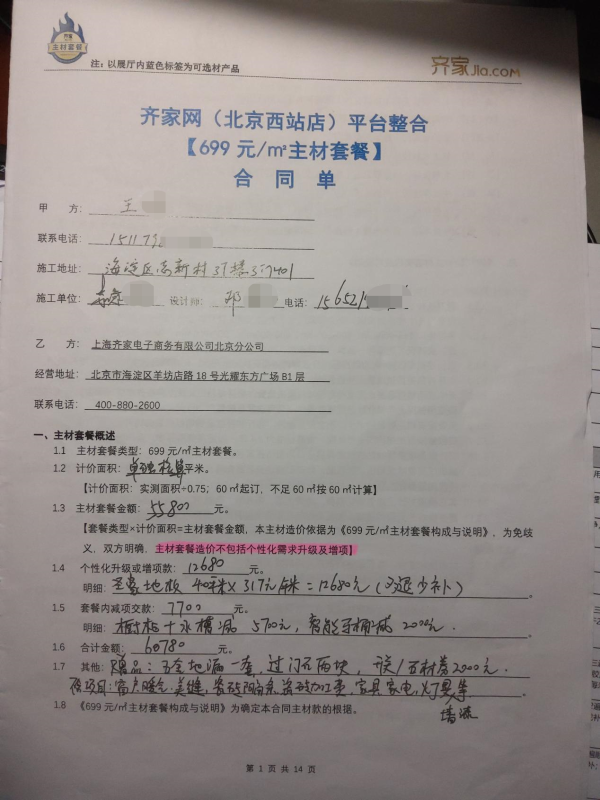 主材套餐
注：以展厅内蓝色标签为可选材产品
齐家Jia.com
齐家网（北京西站店）平台整合
【699 元/㎡主材套餐】
合 同 单
甲 方： 王
联系电话： 15117
施工地址： 海淀区高新村37楼3门401
施工单位： 设计师： 邓 电话：15652
乙 方： 上海齐家电子商务有限公司北京分公司
经营地址： 北京市海淀区羊坊店路 18 号光耀东方广场 B1 层
联系电话： 400-880-2600
一、主材套餐概述
1.1 主材套餐类型：699 元/㎡主材套餐。
1.2 计价面积：单独核算平米。
【计价面积：实测面积÷0.75；60 ㎡起订，不足 60 ㎡按 60 ㎡计算】
1.3 主材套餐金额：55800元。
【套餐类型×计价面积=主材套餐金额，本主材造价依据为《699 元/㎡主材套餐构成与说明》，为免歧
义，双方明确，主材套餐造价不包括个性化需求升级及增项】
1.4 个性化升级或增项款：12680元。
明细：圣象地板 40平米×317元/平米=12680元（多退少补）
1.5 套餐内减项交款：7700元。
明细：橱柜+水槽减 5700元，智能马桶减 2000元.
1.6 合计金额：60780元。
1.7 其他：赠品：五金地漏一套，过门石两块，开关/五材券2000元.
项目：窗户，暖气，美缝，瓷砖加工费，家具家电，灯具等
墙漆
1.8 《699 元/㎡主材套餐构成与说明》为确定本合同主材款的根据。
第 1 页 共 14 页